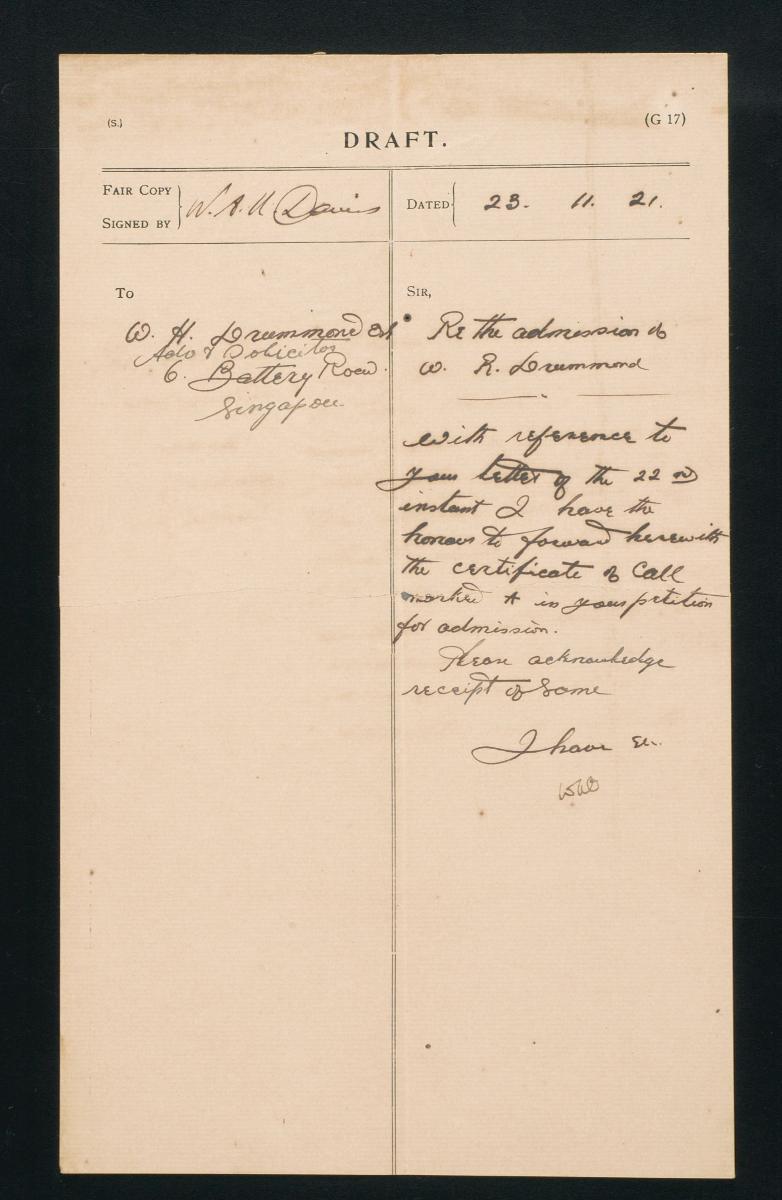 (S.)
(G 17)
DRAFT.
FAIR COPY
SIGNED BY
W. A. N. Davies
DATED
23. 11. 21.
To
W. H. Drummond Esq
Adv & Solicitor
6. Battery Road.
Singapore.
SIR,
Re the admission of
W. R. Drummond
With reference to
your letter of the 22nd
instant I have the
honour to forward herewith
the certificate of Call
marked A in your petition
for admission.
Please acknowledge
receipt of same
I have etc.